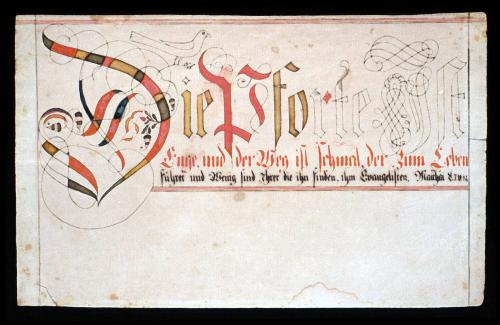 Die Pforte Ist
Enge, und der Weg ist schmal, der Zum Leben
führet und Wenig sind Ihrer die ihn finden, ihm Evangelisten, Mathäi